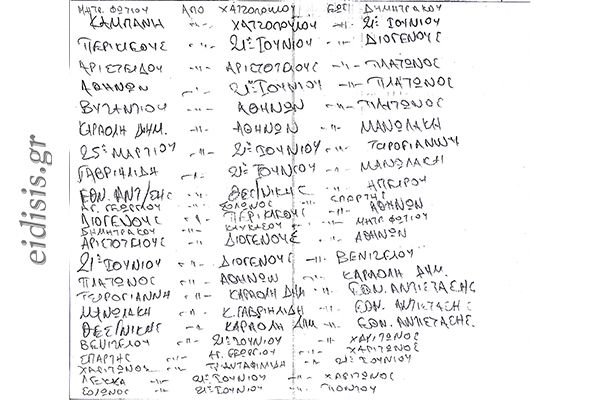 ΜΗΤΡ. ΦΩΤΙΟΥ ΑΠΟ ΧΑΤΖΟΠΟΥΛΟΥ ΕΩΣ ΔΗΜΗΤΡΑΚΟΥ
ΚΑΜΠΑΝΗ -"- ΧΑΤΖΟΠΟΥΛΟΥ -"- 21ης ΙΟΥΝΙΟΥ
ΠΕΡΙΚΛΕΟΥΣ -"- 21ης ΙΟΥΝΙΟΥ -"- ΔΙΟΓΕΝΟΥΣ
ΑΡΙΣΤΕΙΔΟΥ -"- ΑΡΙΣΤΟΤΕΛΟΥΣ -"- ΠΛΑΤΩΝΟΣ
ΑΘΗΝΩΝ -"- 21ης ΙΟΥΝΙΟΥ -"- ΠΛΑΤΩΝΟΣ
ΒΥΖΑΝΤΙΟΥ -"- ΑΘΗΝΩΝ -"- ΠΛΑΤΩΝΟΣ
ΚΑΡΑΟΛΗ ΔΗΜ. -"- ΑΘΗΝΩΝ -"- ΜΑΝΩΛΑΚΗ
25ης ΜΑΡΤΙΟΥ -"- 21ης ΙΟΥΝΙΟΥ -"- ΤΣΙΡΟΓΙΑΝΝΗ
ΓΑΒΡΙΗΛΙΔΗ -"- 21ης ΙΟΥΝΙΟΥ -"- ΜΑΝΩΛΑΚΗ
ΕΘΝ. ΑΝΤ/ΣΗΣ -"- ΘΕΣ/ΝΙΚΗΣ -"- ΗΠΕΙΡΟΥ
ΑΓ. ΓΕΩΡΓΙΟΥ -"- ΣΟΛΩΝΟΣ -"- ΣΠΑΡΤΗΣ
ΔΙΟΓΕΝΟΥΣ -"- ΠΕΡΙΚΛΕΟΥΣ -"- ΑΘΗΝΩΝ
ΔΗΜΗΤΡΑΚΟΥ -"- ΚΙΛΚΙΣΙΟΥ -"- ΜΗΤΡ. ΦΩΤΙΟΥ
ΑΡΙΣΤΟΤΕΛΟΥΣ -"- ΔΙΟΓΕΝΟΥΣ -"- ΑΘΗΝΩΝ
21ης ΙΟΥΝΙΟΥ -"- ΔΙΟΓΕΝΟΥΣ -"- ΒΕΝΙΖΕΛΟΥ
ΠΛΑΤΩΝΟΣ -"- ΑΘΗΝΩΝ -"- ΚΑΡΑΟΛΗ ΔΗΜ.
ΤΣΙΡΟΓΙΑΝΝΗ -"- ΚΑΡΑΟΛΗ ΔΗΜ -"- ΕΘΝ. ΑΝΤΙΣΤΑΣΗΣ
ΜΑΝΩΛΑΚΗ -"- Κ. ΓΑΒΡΙΗΛΙΔΗ -"- ΕΘΝ. ΑΝΤΙΣΤΑΣΗΣ
ΘΕΣ/ΝΙΚΗΣ -"- ΚΑΡΑΟΛΗ ΔΗΜ -"- ΕΘΝ. ΑΝΤΙΣΤΑΣΗΣ.
ΒΕΝΙΖΕΛΟΥ -"- 21ης ΙΟΥΝΙΟΥ -"- ΧΑΡΙΤΩΝΟΣ
ΣΠΑΡΤΗΣ -"- ΑΓ. ΓΕΩΡΓΙΟΥ -"- ΧΑΡΙΤΩΝΟΣ
ΧΑΡΙΤΩΝΟΣ -"- ΤΡΙΑΝΤΑΦΥΛΛΙΔΗ -"- 21ης ΙΟΥΝΙΟΥ
ΛΕΚΚΑ -"- 21ης ΙΟΥΝΙΟΥ -"- ΧΑΡΙΤΩΝΟΣ
ΣΟΛΩΝΟΣ -"- 21ης ΙΟΥΝΙΟΥ -"- ΠΟΝΤΟΥ
eidisis.gr